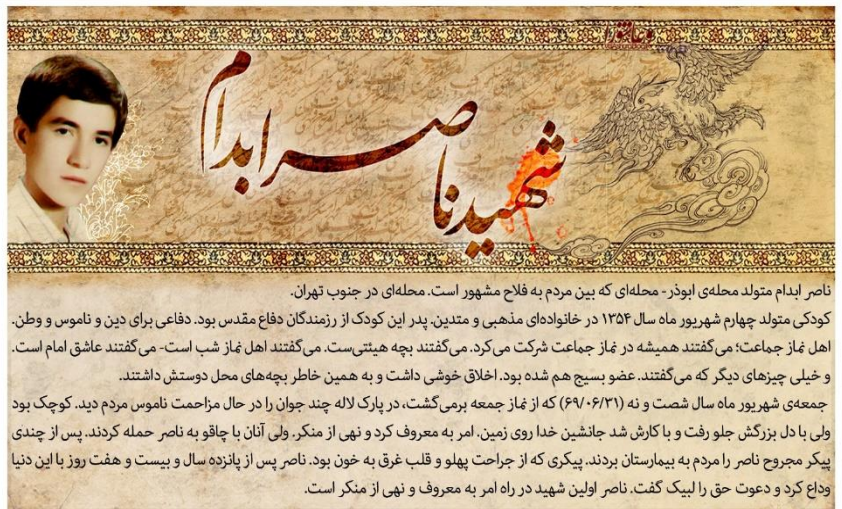 شهید ناصر ابدام
ناصر ابدام متولد محله‌ی ابوذر- محله‌ای که بین مردم به فلاح مشهور است. محله‌ای در جنوب تهران.
کودکی متولد چهارم شهریور ماه سال ۱۳۵۴ در خانواده‌ای مذهبی و متدین. پدر این کودک از رزمندگان دفاع مقدس بود. دفاعی برای دین و ناموس و وطن.
اهل نماز جماعت؛ می‌گفتند همیشه در نماز جماعت شرکت می‌کرد. می‌گفتند بچه هیئتی‌ست. می‌گفتند اهل نماز شب است- می‌گفتند عاشق امام است.
و خیلی چیزهای دیگر که می‌گفتند. عضو بسیج هم شده بود. اخلاق خوشی داشت و به همین خاطر بچه‌های محل دوستش داشتند.
جمعه‌ی شهریور ماه سال شصت و نه (۶۹/۰۶/۳۱) که از نماز جمعه برمی‌گشت، در پارک لاله چند جوان را در حال مزاحمت ناموس مردم دید. کوچک بود
ولی با دل بزرگش جلو رفت و با کارش شد جانشین خدا روی زمین. امر به معروف کرد و نهی از منکر. ولی آنان با چاقو به ناصر حمله کردند. پس از چندی
پیکر مجروح ناصر را مردم به بیمارستان بردند. پیکری که از جراحت پهلو و قلب غرق به خون بود. ناصر پس از پانزده سال و بیست و هفت روز با این دنیا
وداع کرد و دعوت حق را لبیک گفت. ناصر اولین شهید در راه امر به معروف و نهی از منکر است.